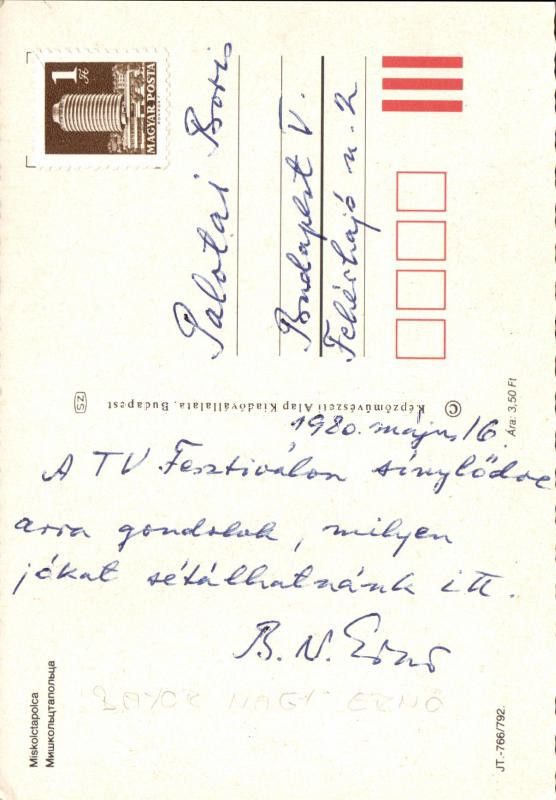 1 Ft
MAGYAR POSTA
Palotai Boris
Budapest V.
Fehérhajó u. 2
Képzőművészeti Alap Kiadóvállalata, Budapest
SZ
©
Ára: 3,50 Ft
1980. május 16.
A TV Fesztiválon sínylődve
arra gondolok, milyen
jókat sétálhatnánk itt.
B. N. Ernő
BAYOR NAGY ERNŐ
Miskolctapolca
Мишкольцтапольца
JT.-766/792.